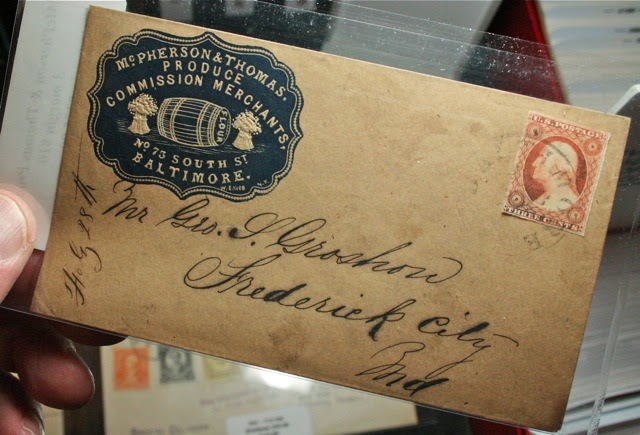 McPHERSON & THOMAS,
PRODUCE
COMMISSION MERCHANTS,
FLOUR
No 75 SOUTH ST
BALTIMORE.
U.S. POSTAGE
THREE CENTS
Mr Geo. S. Groshon
Frederick City
Md